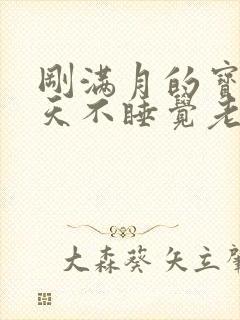 剛滿月的寶
天不睡覺老
大森葵 矢立肇